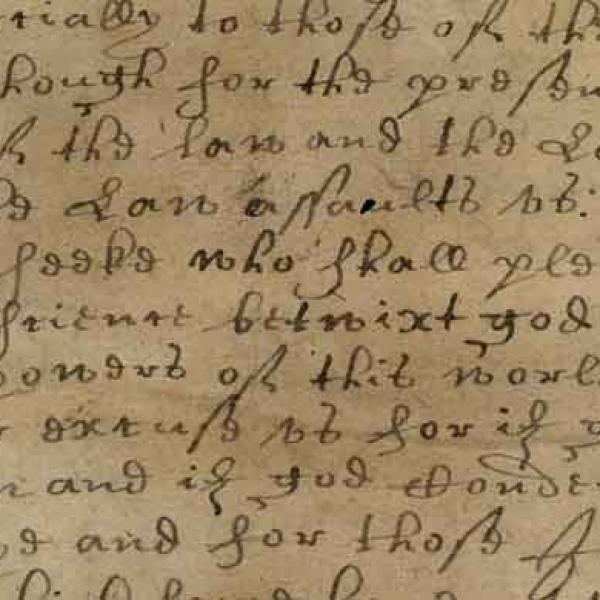 tially to those of the
though for the presen
of the law and the La
the Law assaults vs:
seeke who shall ple
science betwixt god
powers of this worl
excuse vs for if
and if god Conde
and for those